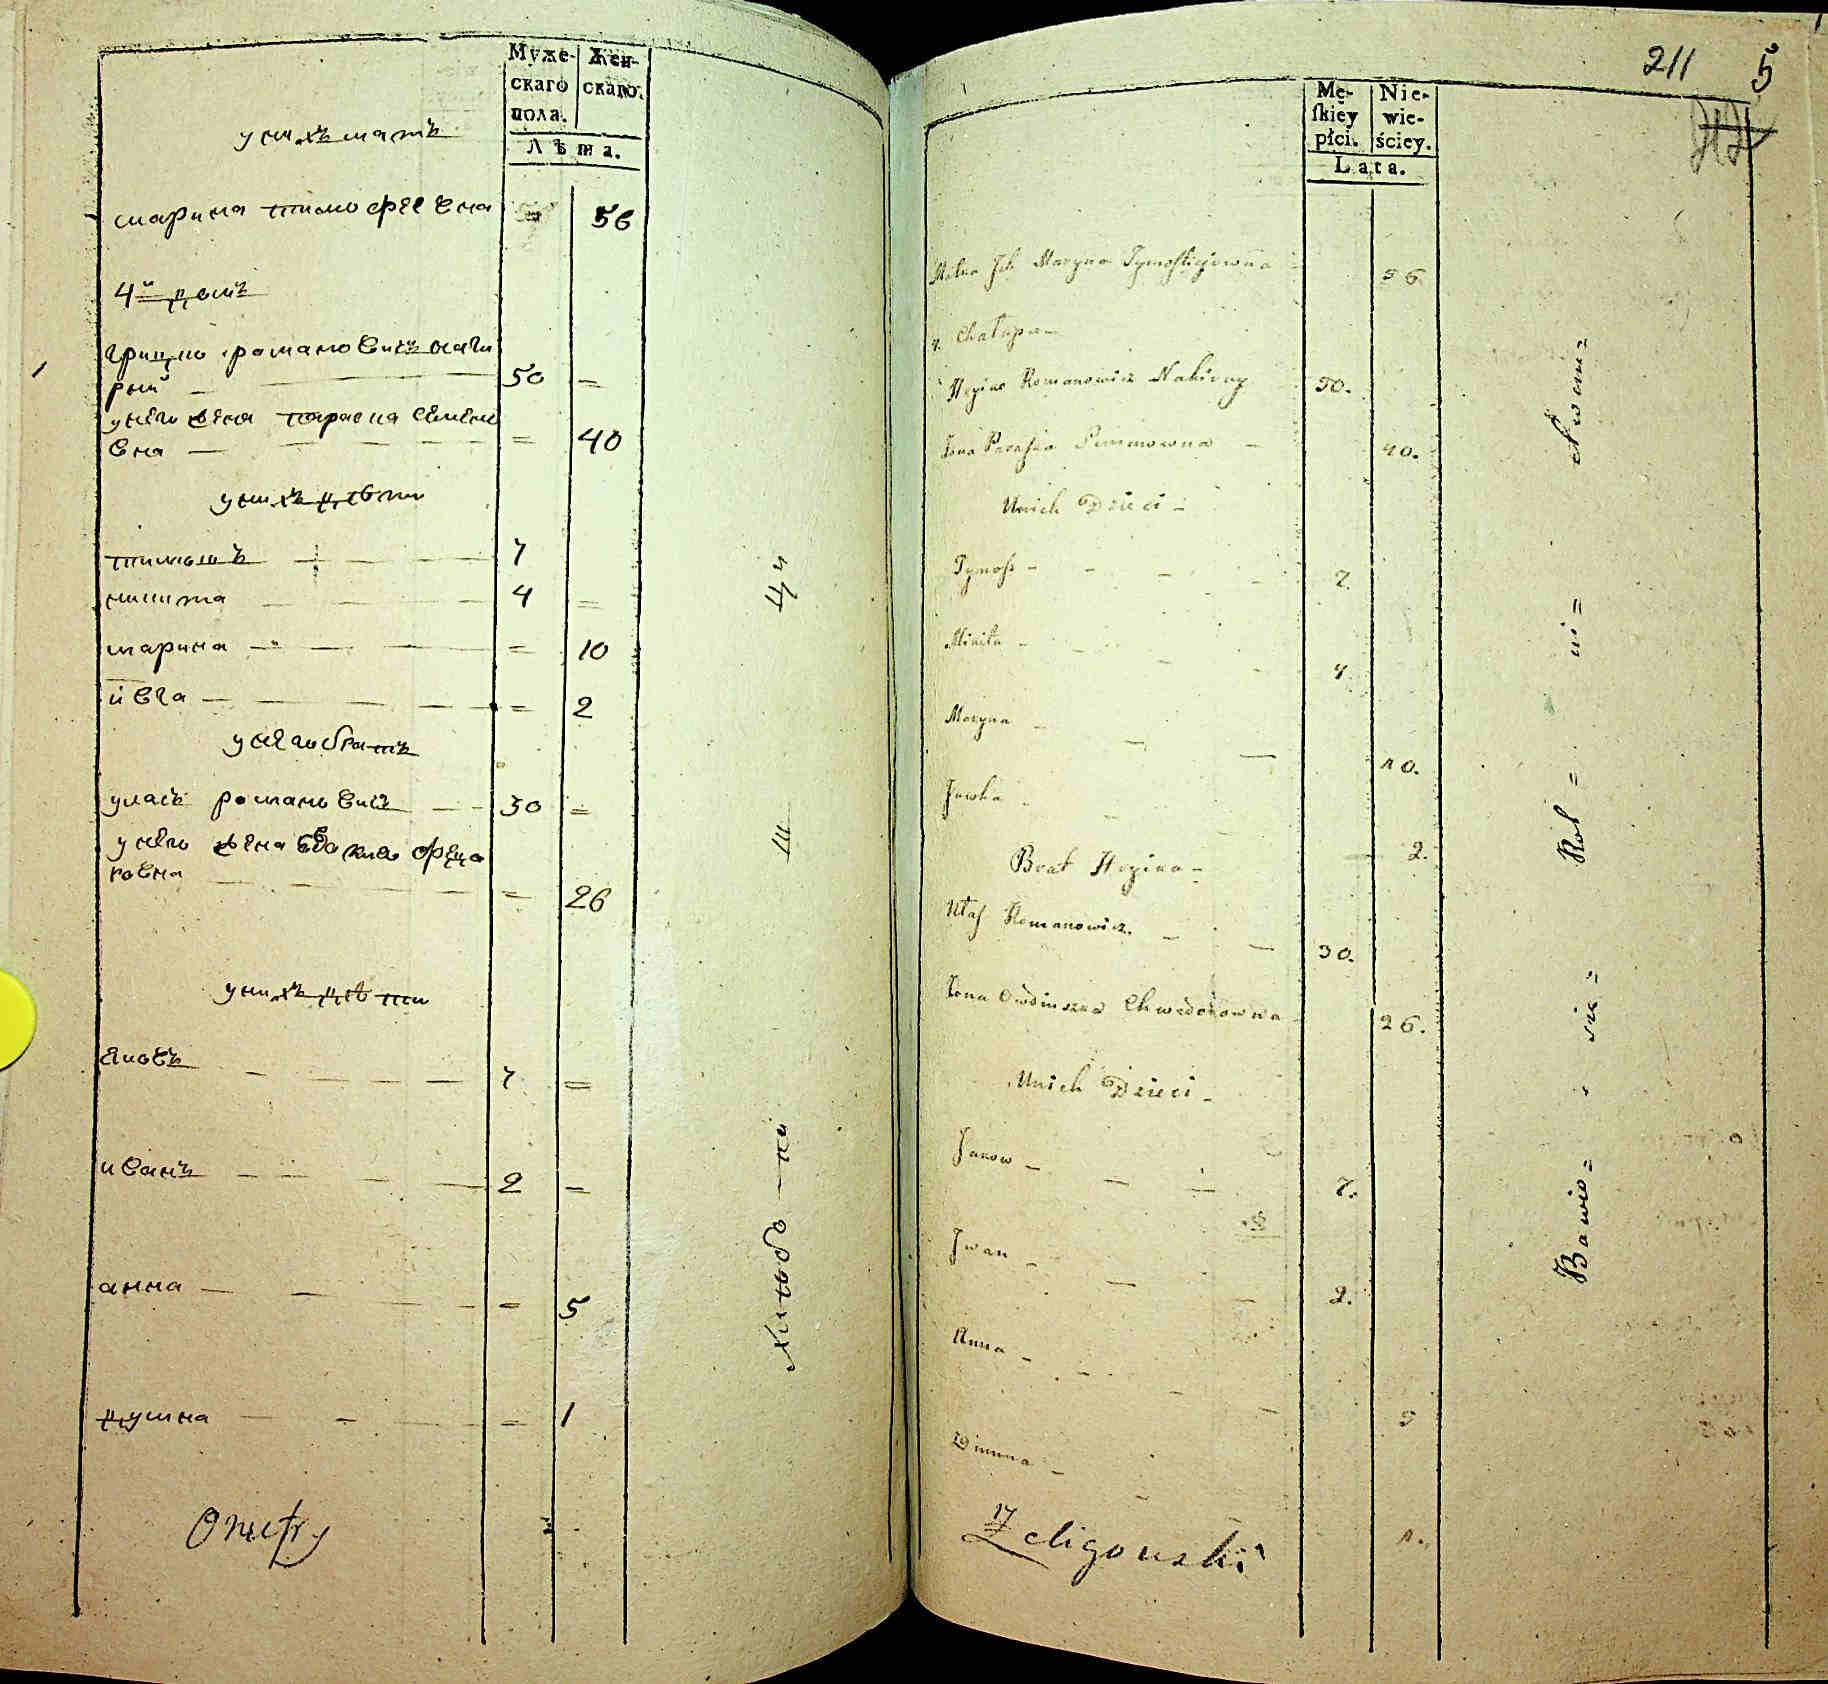 Муже-
скаго
пола.
Жен-
скаго.
Лѣта.
у нихъ мать
марина тимофеевна 56
4й домъ
грицко романовичъ наги
рый — 50 =
у него жена параска семено
вна — = 40
у нихъ дѣти
тимошъ — 7
микита — 4 =
марина — = 10
ивга — = 2
у него братъ
уласъ романовичъ — 30 =
у него жена
= 26
у нихъ дѣти
яковъ — 7 =
иванъ — 2 —
анна — = 5
думна — = 1
211 5
Mę-
ſkiey
płci.
Nie-
wie-
ściey.
Lata.
Matka Ich Maryna Tymoſhiejowna 56
4. Chałupa —
Hryćko Romanowicz Nahirny 50.
Żona Paraſka Semenowna — 40.
Unich Dzieci —
Tymoſz — 7.
Mikita — 4
Maryna — 10.
Jewha — 2.
Brat Hryćka —
Ułaſ Romanowicz. — 30.
Żona Chwedorowna 26.
Unich Dzieci —
Jakow — 7.
Iwan — 2.
Anna — 5
Dumna — 1.
Żeligowski
Bawio = sie = Rol = ni = ctwem =